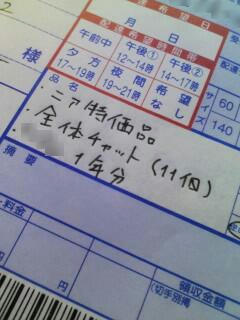 配達希望日
月 日
配達希望時間帯
午前中
午後①
12~14時
午後②
14~17時
夕方
17~19時
夜間
19~21時
希望なし
様
サイズ
60
140
品名
・ニア特価品
・全体チャット(11個)
1年分
摘要
料金
円
円
領収金額
(切手別掲